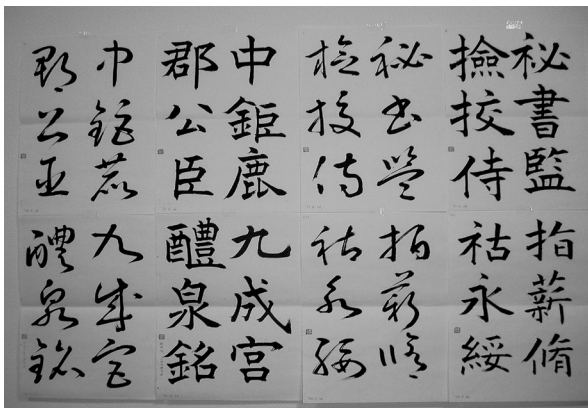 秘書監
撿挍侍
秘書監
撿挍侍
中鉅鹿
郡公臣
中鉅鹿
郡公臣
指薪脩
祜永綏
指薪脩
祜永綏
九成宮
醴泉銘
九成宮
醴泉銘